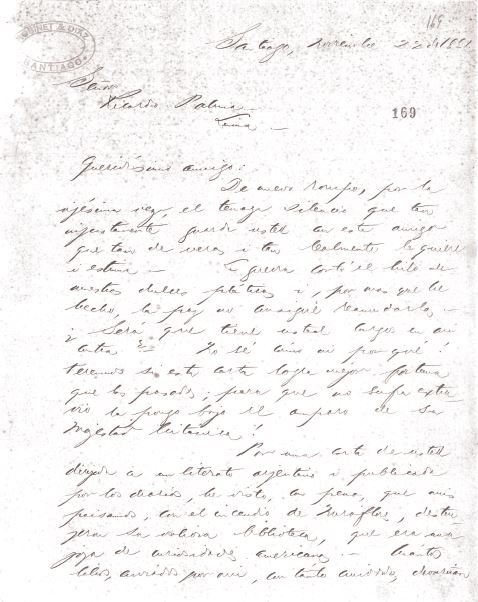 169
GABINET & DIAZ
SANTIAGO
Santiago, Noviembre 22 de 1881
Señor
Ricardo Palma
Lima -
169
Queridísimo amigo:
De nuevo rompo, por la
vijésima vez, el tenaz silencio que tan
injustamente guarda usted con este amigo
que tan de veras i tan lealmente le quiere
i estima - La guerra cortó el hilo de
nuestras dulces pláticas i, por mas que he
hecho, la paz no consiguió reanudarlo. -
¿Será que tiene usted cargos en mi
contra? No sé cómo ni por qué!
Veremos si esta carta logra mejor fortuna
que las pasadas; para que no sufra extra-
vio la pongo bajo el amparo de Su
Majestad Británica!
Por una carta de usted
dirijida a un literato arjentino i publicada
por los diarios, he visto, con pena, que mis
paisanos, con el incendio de Miraflores, destru-
yeron su valiosa biblioteca, que era una
joya de curiosidades americanas. - Cuantos
libros, enviados por mi, con tanto cuidado,